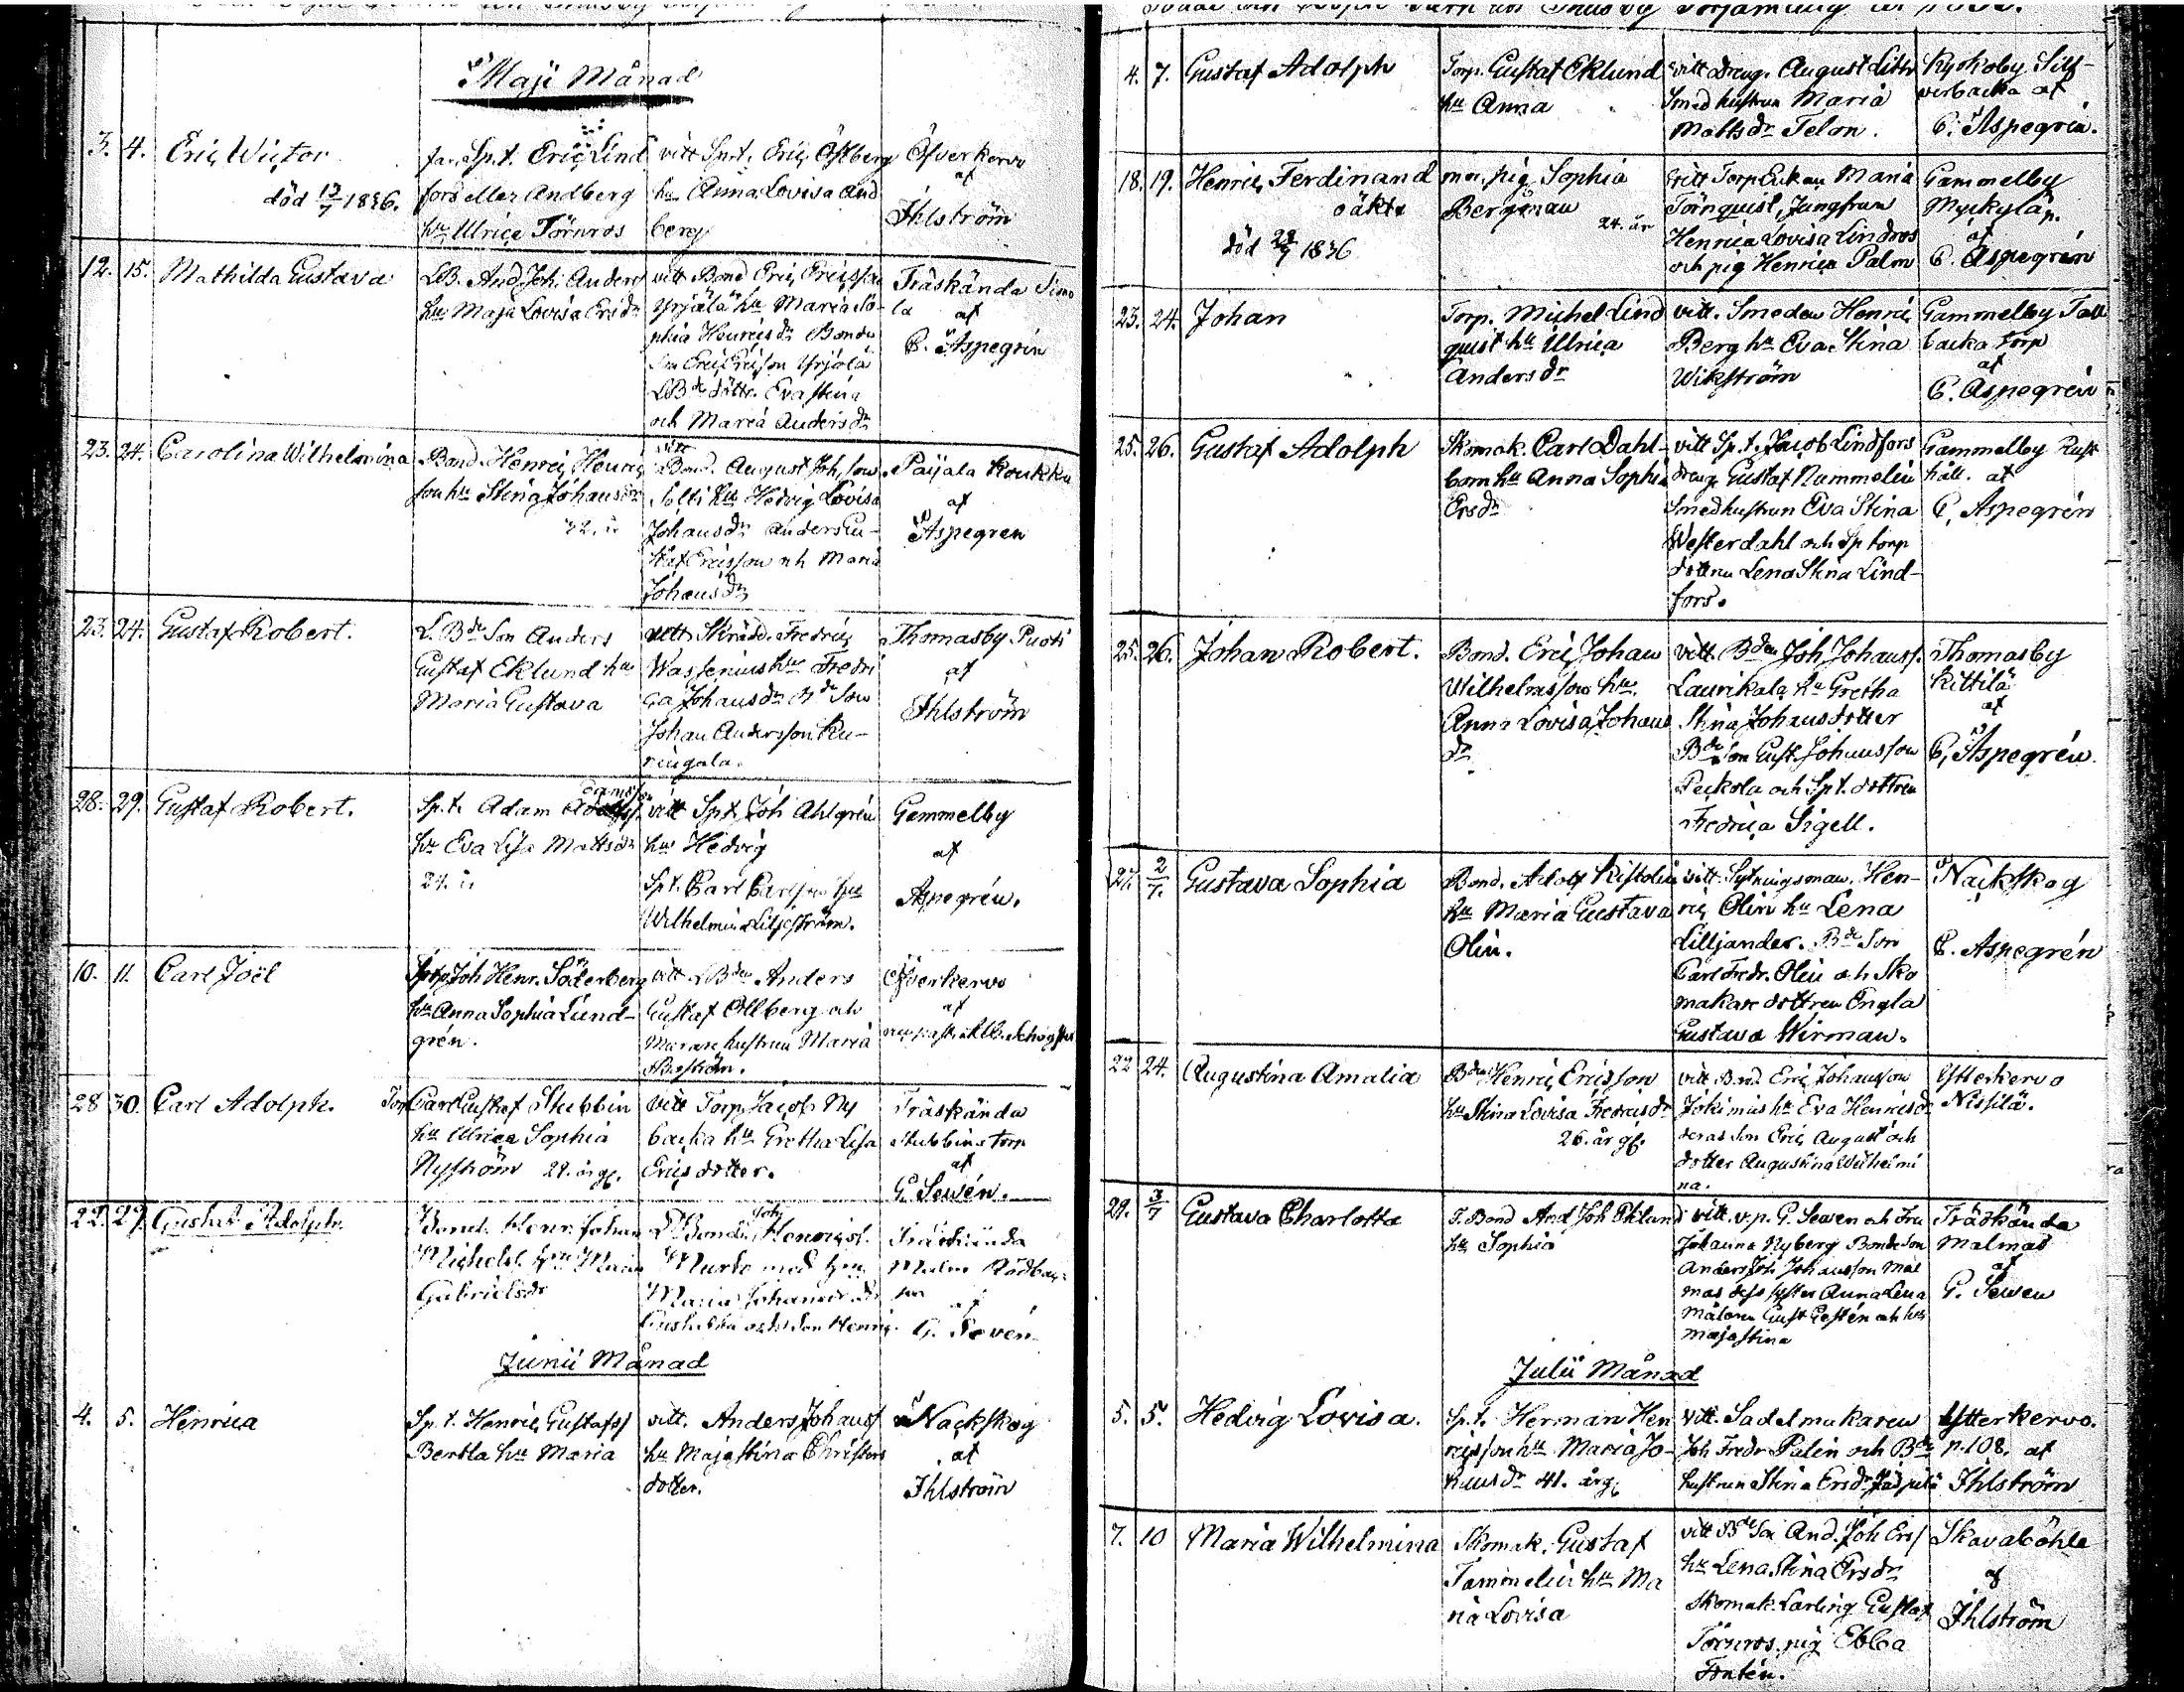 Maji Månad
3. 4. Eric Wictor
död 13/7 1836.
far Sp.t. Eric Lind
fors eller Andberg
hu Ulrica Törnros
vitt Sp.t. Eric Östberg
hu Anna Lovisa And
berg
Öfverkervo
af
Ihlström
12. 15. Mathilda Gustava
LB. And. Joh. Anders
hu Maja Lovisa Ersdr
vitt Bond Eric Ericsson
Yrjälä hu Maria So-
phia Henricsdr Bonde
Son Eric Ericson Yrjälä
LBde döttr. Eva Stina
och Maria Andersdr
Träskända Simo
la af
C. Aspegrén
23. 24. Carolina Wilhelmina
Bond. Henric Henric
son hu Stina Johansdr
32. år
vitt
Bond. August Joh.son
Solti hu Hedvig Lovisa
Johansdr Anders Gu-
staf Ericsson och Maria
Johansdr
Paijala Koukku
af
Aspegren
23. 24. Gustaf Robert.
L. Bde Son Anders
Gustaf Eklund hu
Maria Gustava
vitt Skrädd. Fredric
Wassenius hu Fredri
ca Johansdr Bde Son
Johan Andersson Ku-
ningala.
Thomasby Puoti
af
Ihlström
28. 29. Gustaf Robert.
Sp.t. Adam
hu Eva Lisa Mattsdr
24. år
vitt Sp.t. Joh Ahlgrén
hu Hedvig
Sp.t. Carl Carlson hu
Wilhelmina Liljeström.
Gammelby
af
Aspegrén.
10. 11. Carl Joël
Sptp Joh Henr. Söderberg
hu Anna Sophia Lund-
grén.
vitt LBden Anders
Gustaf Ollberg och
Murare hustrun Maria
Öfverkervo
af
28 30. Carl Adolph.
Torp Carl Gustaf Stubbin
hu Ulrica Sophia
Nyström 29. år gl.
vitt Torp. Jacob Ny
backa hu Gretha Lisa
Ericsdotter.
Träskända
Stubbins torp
af
G. Sewén.
22. 27. Gustaf Adolph.
Bond. Henr. Johan
Michelss. hu Maria
Gabrielsdr
L Bond. Joh Henricss.
Murto med hu
Maria Johansdr
Gustafva och Son Henric.
Träskända
Malm Rödbac-
ka af
G. Sevén
Junii Månad
4. 5. Henrica
Sp.t. Henric Gustafss
Bertla hu Maria
vitt. Anders Johanss
hu Maja Stina Christers
dotter.
Nackskog
af
Ihlström
4. 7. Gustaf Adolph
Torp. Gustaf Eklund
hu Anna
vitt Dreng. August
Smedhustrun Maria
Mattsdr Telon.
Kyrkoby Silf-
verbacka af
C. Aspegrén.
18. 19. Henric Ferdinand
oäkta
död 29/7 1836
mor. pig Sophia
Bergman
24. år
vitt Torp Enkan Maria
Törnquist, Jungfrun
Henrica Lovisa Lindros
och pig Henrica Palm
Gammelby
Myrkylä n.
af
C. Aspegrén
23. 24. Johan
Torp. Michel Lind
quist hu Ulrica
Andersdr
vitt. Smeden Henric
Berg hu Eva Stina
Wikström
Gammelby Tall
backa Torp
af
C. Aspegrén
25. 26. Gustaf Adolph
Skomak. Carl Dahl-
bom hu Anna Sophia
Ersdr
vitt Sp.t. Jacob Lindfors
dreng. Gustaf Nummelin
Smedhustrun Eva Stina
Westerdahl och Sp torp
dottren Lena Stina Lind-
fors.
Gammelby Rust
håll. af
C. Aspegrén
25. 26. Johan Robert.
Bond. Eric Johan
Wilhelmsson hu
Anna Lovisa Johans
dr
vitt. Bden Joh Johanss.
Laurikala hu Gretha
Stina Johansdotter
Bde Son Gust. Johansson
Peckola och Sp.t. dottren
Fredrica Sigell.
Thomasby
Kittilä
af
C. Aspegrén.
27. 2/7. Gustava Sophia
Bond. Adolf Ristolin
hu Maria Gustava
Olin.
vitt. Sytningsman Hen-
ric Olin hu Lena
Lilljander. Bde Son
Carl Fredr. Olin och Sko
makare dottren Engla
Gustava Wirman.
Nackskog
C. Aspegrén
22 24. Augustina Amalia
Bden Henric Ericsson
hu Stina Lovisa Fredricsdr
26. år gl.
vitt Bond Eric Johansson
Jokimies hu Eva Henricsdr
deras Son Eric August och
dotter Augustina Wilhelmi
na.
Ytterkervo
Nissilä.
29. 3/7 Gustava Charlotta
T. Bond And Joh Eklund
hu Sophia
vitt. v.p. G. Sewen och Fru
Johanna Nyberg Bonde Son
Anders Joh. Johansson Mal
mas dess syster Anna Lena
Målaren Gust Gestén och hu
Maja Stina
Träskända
Malmas
af
G. Sewen
Julii Månad
5. 5. Hedvig Lovisa.
Sp.t. Herman Hen
ricsson hu Maria Jo-
hansdr 41. år g.
vitt. Sadelmakaren
Joh Fredr Palin och Bde
hustrun Stina Ersdr
Ytterkervo.
n. 108. af
Ihlström
7. 10 Maria Wilhelmina
Skomak. Gustaf
Tammelin hu Ma
ria Lovisa
vitt Bde Son And. Joh Ers
hu Lena Stina Ersdr
Skomak. Lärling Gustaf
Törnros, pig Ebba
Fontén.
Skavaböhle
af
Ihlström